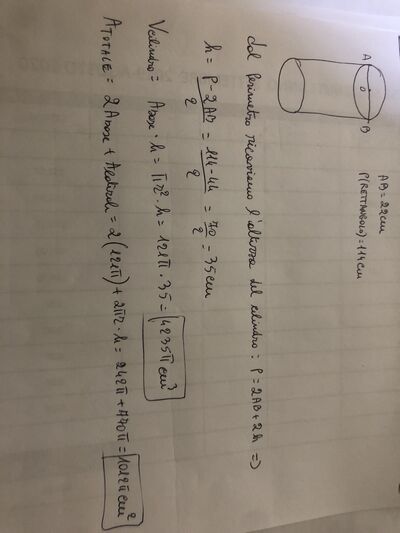 A
O
B
AB = 22cm
P(RETTANGOLO) = 114 cm
dal perimetro ricaviamo l'altezza del cilindro: P = 2AB + 2h =>
h = P - 2AB / 2 = 114 - 44 / 2 = 70 / 2 = 35 cm
Vcilindro = Abase · h = πr² · h = 121π · 35 = 4235π cm³
ATOTALE = 2 Abase + Alaterale = 2(121π) + 2πr · h = 242π + 770π = 1012π cm²